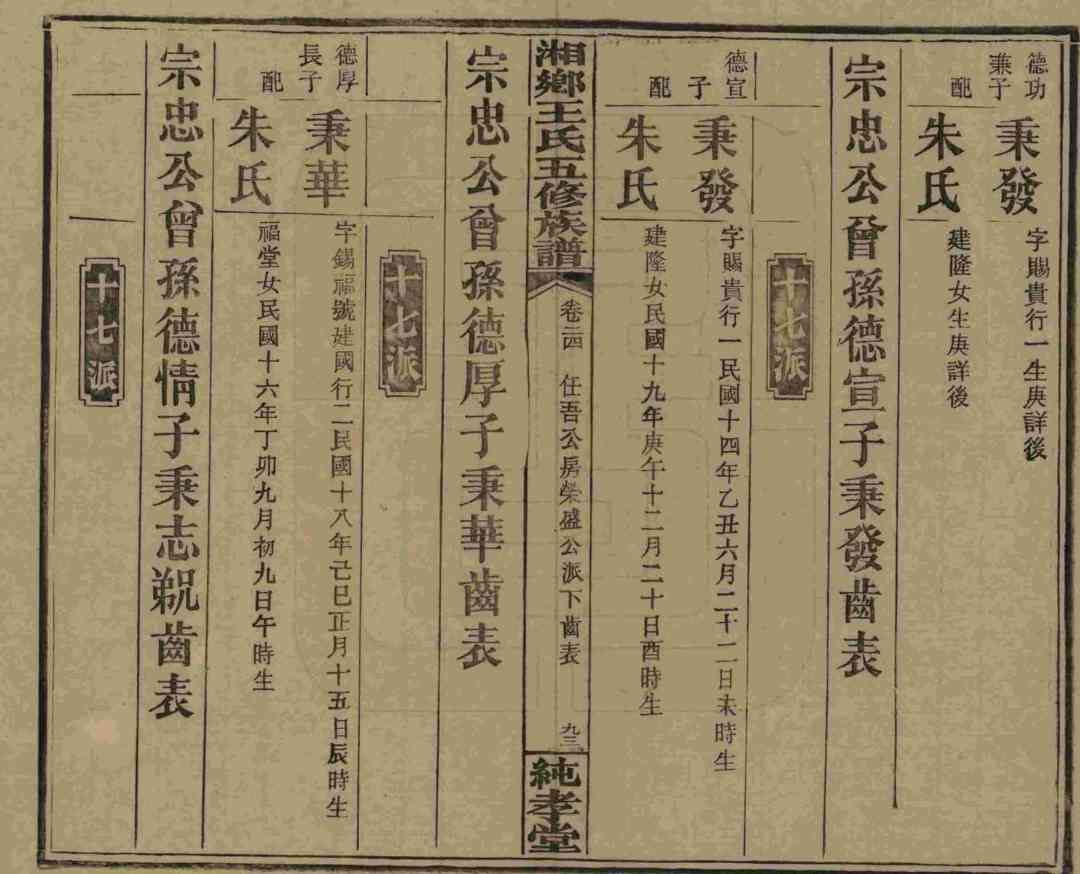 德功
兼子
秉發
字賜貴行一生庚詳後
配
朱氏
建隆女生庚詳後
宗忠公曾孫德宣子秉發齒表
十七派
德宣
子
秉發
字賜貴行一民國十四年乙丑六月二十二日未時生
配
朱氏
建隆女民國十九年庚午十二月二十日酉時生
湘鄉王氏五修族譜
卷二四
任吾公房榮盛公派下齒表
九三
純孝堂
宗忠公曾孫德厚子秉華齒表
十七派
德厚
長子
秉華
字錫福號建國行二民國十八年己巳正月十五日辰時生
配
朱氏
福堂女民國十六年丁卯九月初九日午時生
宗忠公曾孫德情子秉志貎齒表
十七派